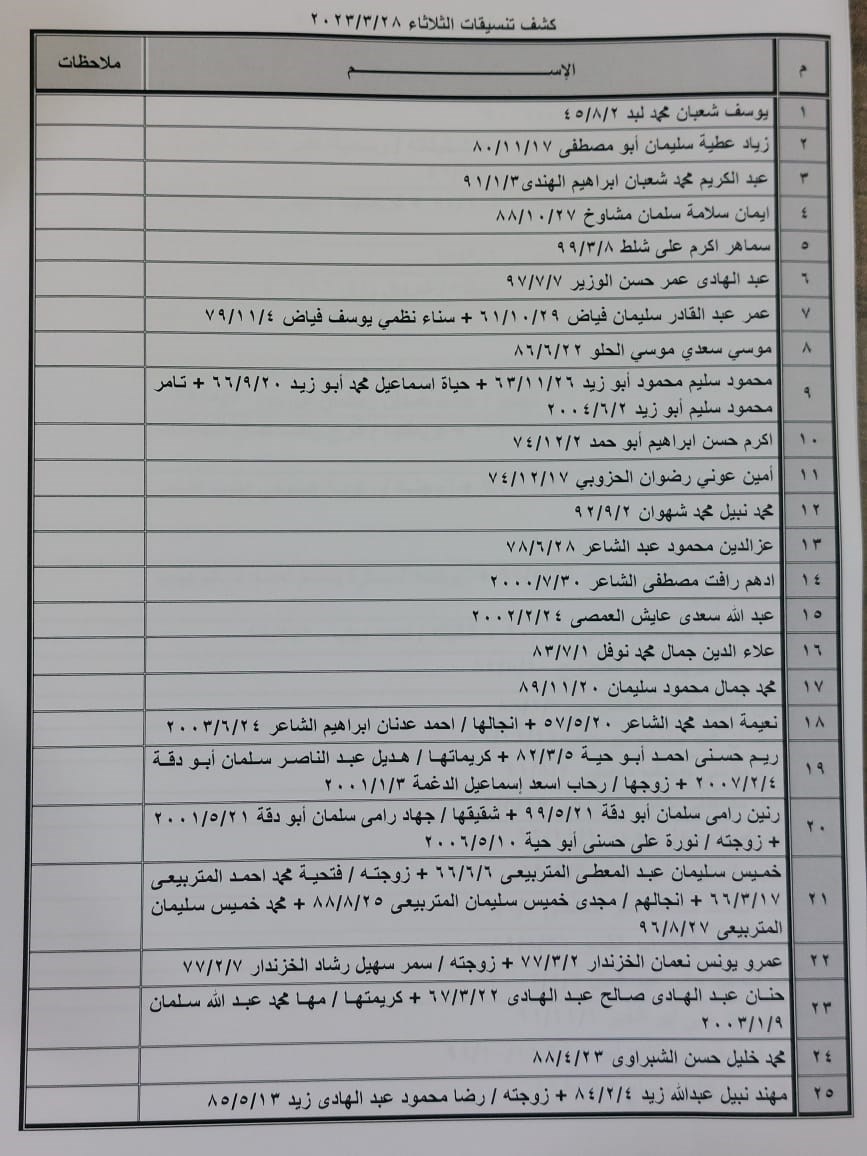 كشف تنسيقات الثلاثاء ٢٠٢٣/٣/٢٨
م الإســـــم ملاحظات
١ يوسف شعبان محمد لبد ٤٥/٨/٢
٢ زياد عطية سليمان أبو مصطفى ٨٠/١١/١٧
٣ عبد الكريم محمد شعبان ابراهيم الهندى ٩١/١/٣
٤ ايمان سلامة سلمان مشاوخ ٨٨/١٠/٢٧
٥ سماهر اكرم على شلط ٩٩/٣/٨
٦ عبد الهادى عمر حسن الوزير ٩٧/٧/٧
٧ عمر عبد القادر سليمان فياض ٦١/١٠/٢٩ + سناء نظمي يوسف فياض ٧٩/١١/٤
٨ موسي سعدي موسي الحلو ٨٦/٦/٢٢
٩ محمود سليم محمود أبو زيد ٦٣/١١/٢٦ + حياة اسماعيل محمد أبو زيد ٦٦/٩/٢٠ + تامر
محمود سليم أبو زيد ٢٠٠٤/٦/٢
١٠ اكرم حسن ابراهيم أبو حمد ٧٤/١٢/٢
١١ أمين عوني رضوان الحزوبي ٧٤/١٢/١٧
١٢ محمد نبيل محمد شهوان ٩٢/٩/٢
١٣ عزالدين محمود عبد الشاعر ٧٨/٦/٢٨
١٤ ادهم رافت مصطفى الشاعر ٢٠٠٠/٧/٣٠
١٥ عبد الله سعدى عايش العمصى ٢٠٠٢/٢/٢٤
١٦ علاء الدين جمال محمد نوفل ٨٣/٧/١
١٧ محمد جمال محمود سليمان ٨٩/١١/٢٠
١٨ نعيمة احمد محمد الشاعر ٥٧/٥/٢٠ + انجالها / احمد عدنان ابراهيم الشاعر ٢٠٠٣/٦/٢٤
١٩ ريم حسنى احمد أبو حية ٨٢/٣/٥ + كريماتها / هديل عبد الناصر سلمان أبو دقة
٢٠٠٧/٢/٤ + زوجها / رحاب اسعد إسماعيل الدغمة ٢٠٠١/١/٣
٢٠ رنين رامى سلمان أبو دقة ٩٩/٥/٢١ + شقيقها / جهاد رامى سلمان أبو دقة ٢٠٠١/٥/٢١
+ زوجته / نورة على حسنى أبو حية ٢٠٠٦/٥/١٠
٢١ خميس سليمان عبد المعطى المتربيعى ٦٦/٦/٦ + زوجته / فتحية محمد احمد المتربيعى
٦٦/٣/١٧ + انجالهم / مجدى خميس سليمان المتربيعى ٨٨/٨/٢٥ + محمد خميس سليمان
المتربيعى ٩٦/٨/٢٧
٢٢ عمرو يونس نعمان الخزندار ٧٧/٣/٢ + زوجته / سمر سهيل رشاد الخزندار ٧٧/٢/٧
٢٣ حنان عبد الهادى صالح عبد الهادى ٦٧/٣/٢٢ + كريمتها / مها محمد عبد الله سلمان
٢٠٠٣/١/٩
٢٤ محمد خليل حسن الشبراوى ٨٨/٤/٢٣
٢٥ مهند نبيل عبدالله زيد ٨٤/٢/٤ + زوجته / رضا محمود عبد الهادى زيد ٨٥/٥/١٣